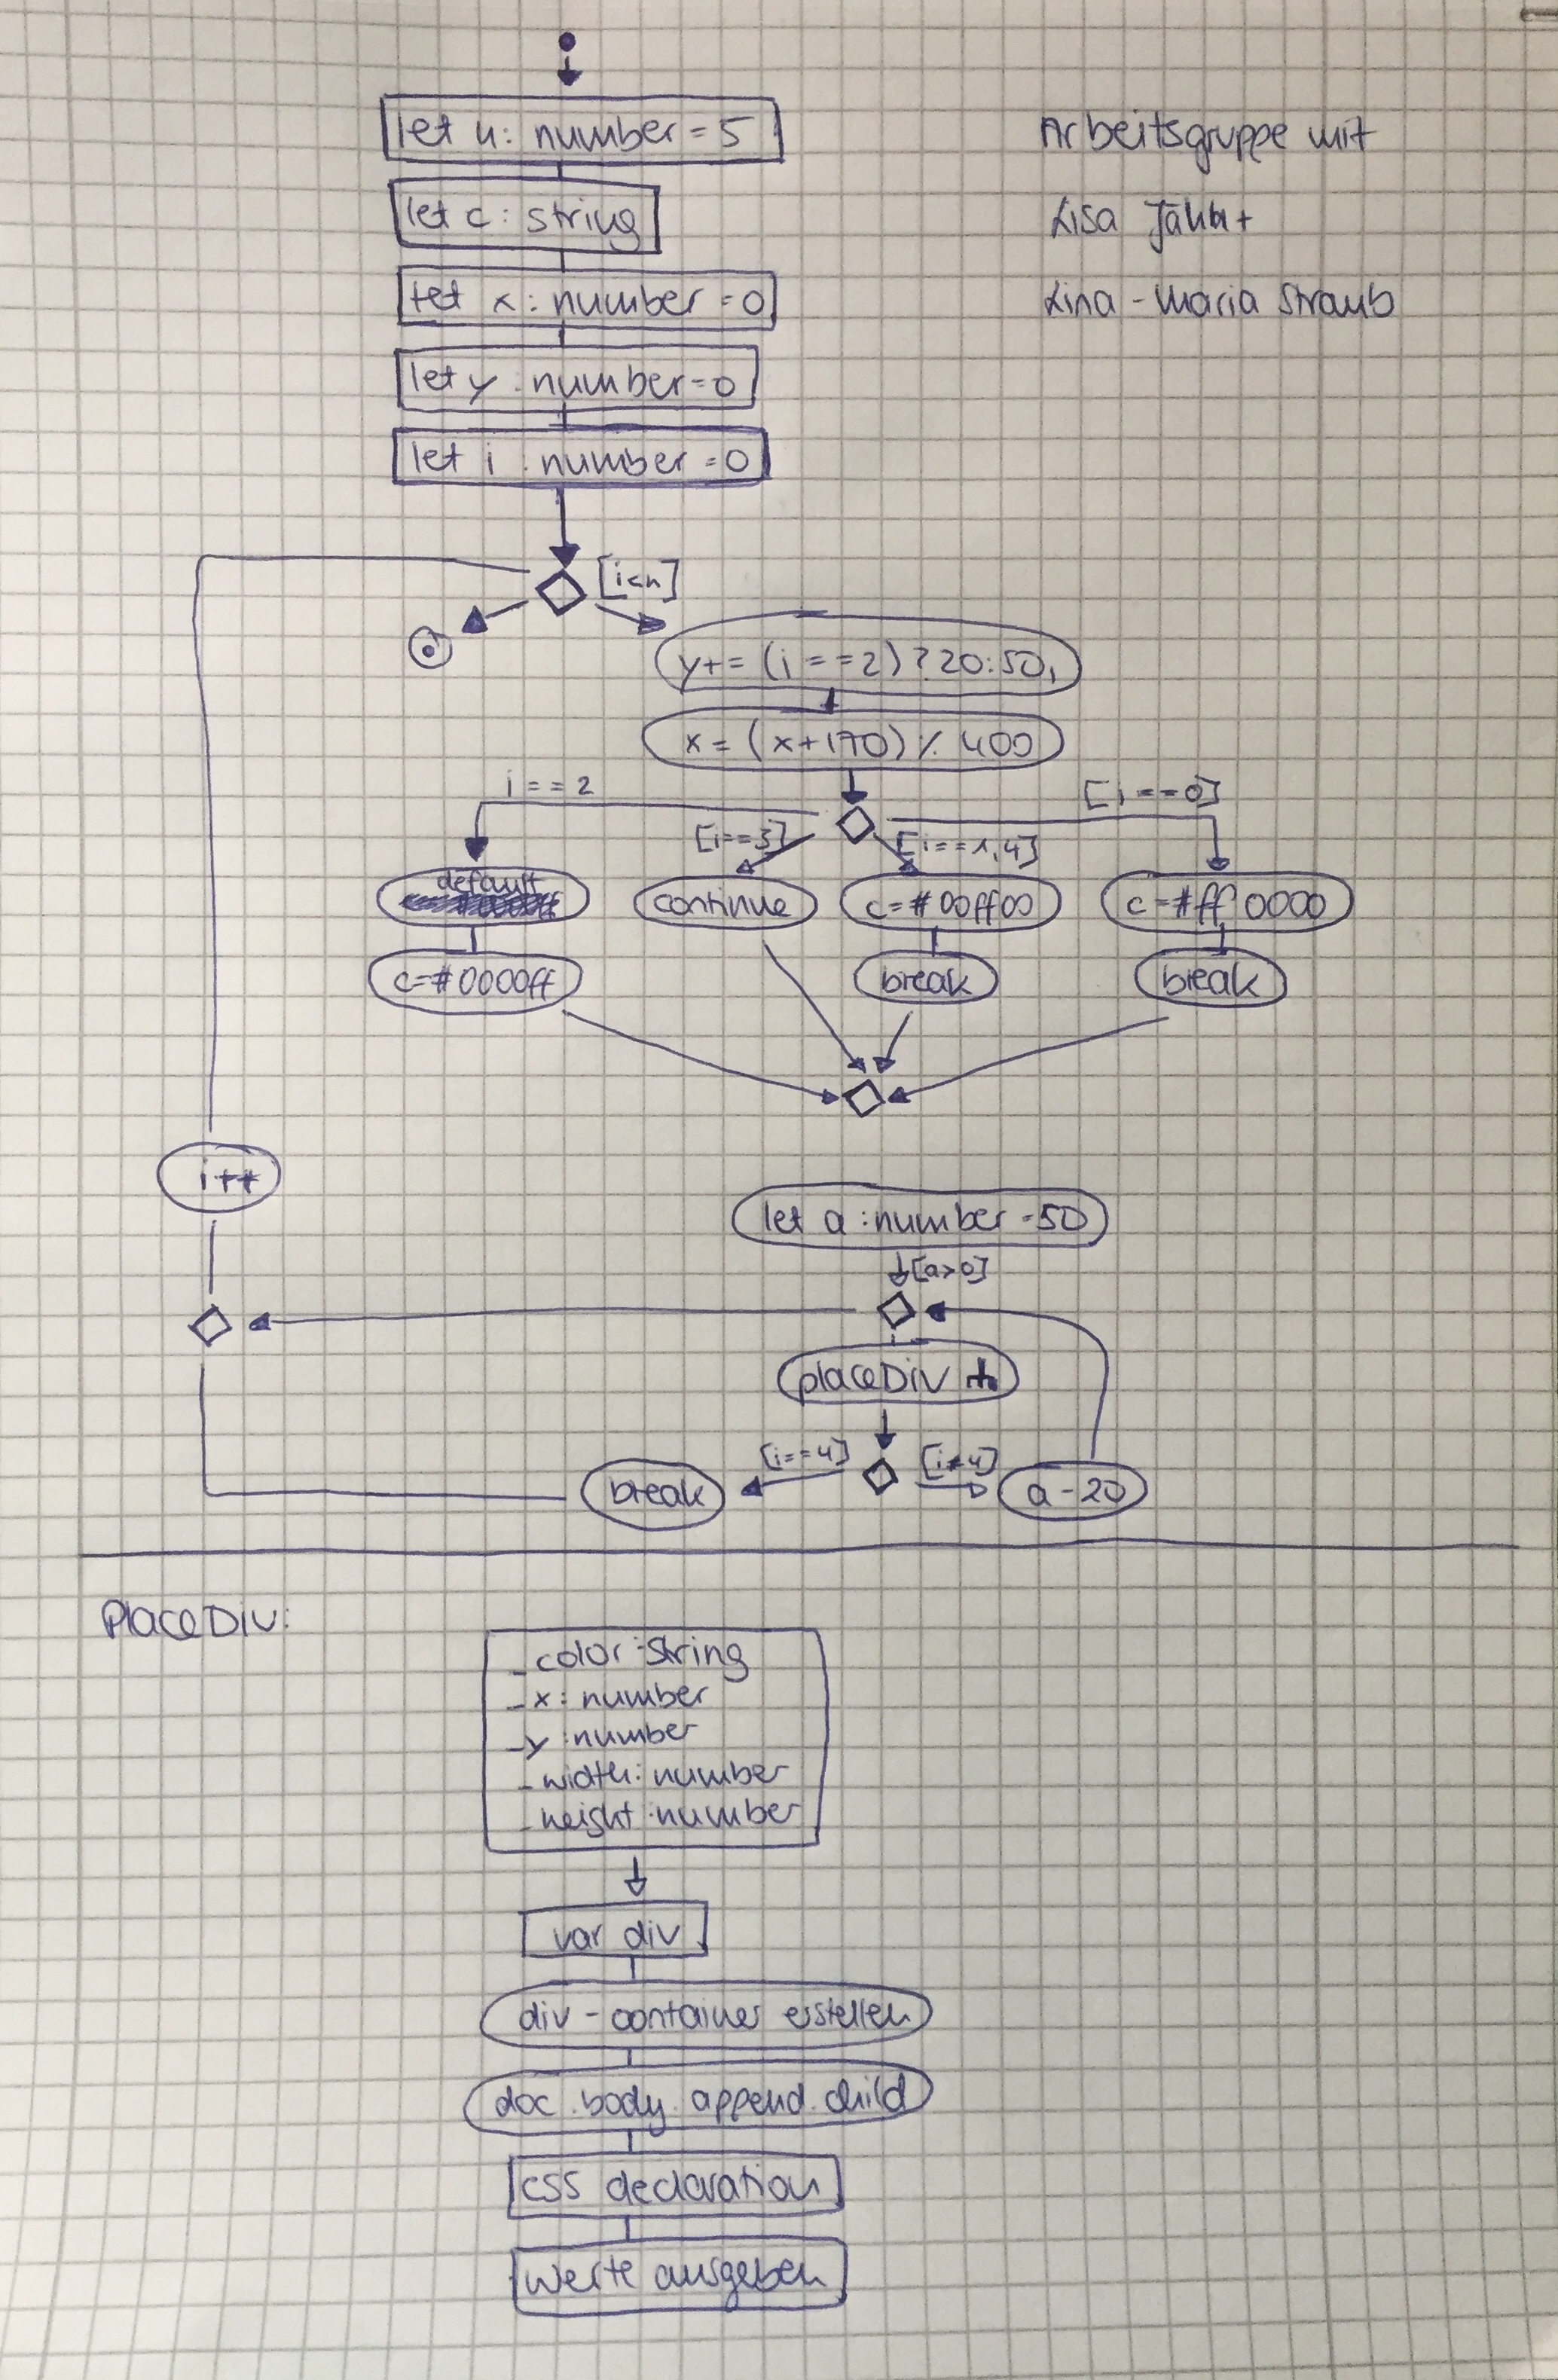 let n: number = 5
Arbeitsgruppe mit
let c: string
Lisa
let x: number = 0
Lina-Maria Straub
let y: number = 0
let i: number = 0
[i<n]
y+= (i == 2) ? 20:50,
x = (x+170) % 400
i == 2
[i==0]
[i==3]
[i==1,4]
default
continue
c=#00ff00
c=#ff0000
c=#0000ff
break
break
i++
let a:number = 50
[a>0]
placeDiv
[i==4]
[i≠4]
break
a-20
PlaceDiv:
_color:String
_x: number
_y:number
_width: number
_height:number
var div
div-container erstellen
doc.body.append.child
css declaration
Werte ausgeben